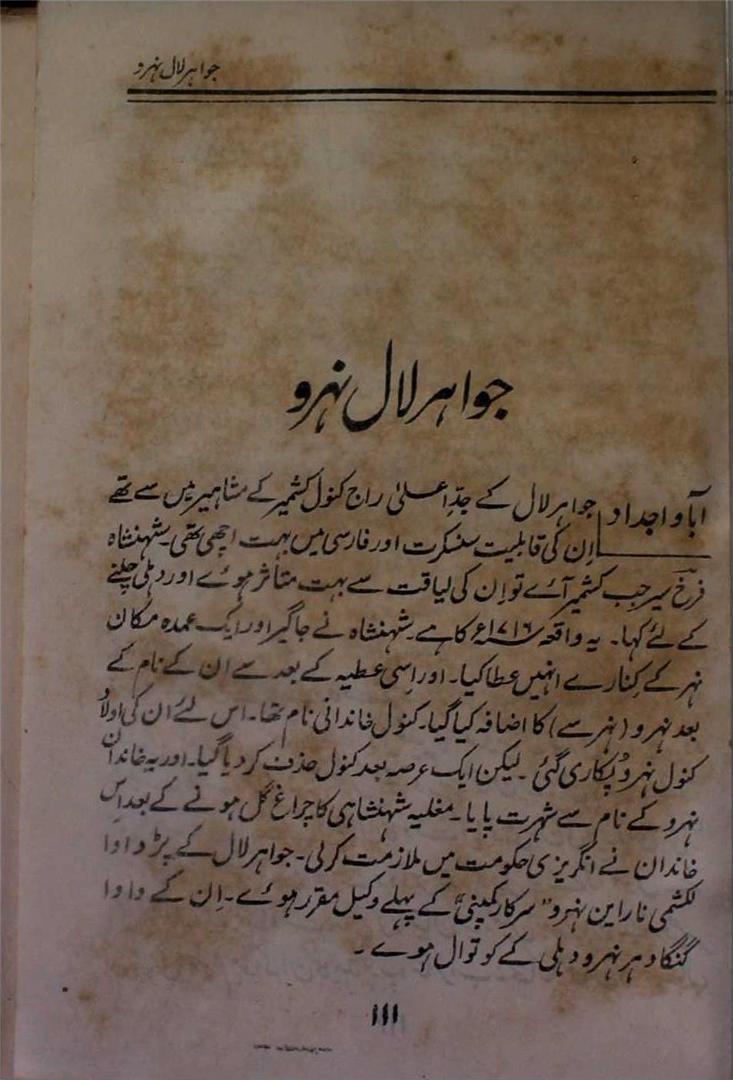 جواہر لال نہرو
جواہر لال نہرو
آبا و اجداد جواہر لال کے جدِّ اعلیٰ راج کنول کشمیر کے مشاہیر میں سے تھے
اِن کی قابلیت سنسکرت اور فارسی میں بہت اچھی تھی۔ شہنشاہ
فرخ سیر جب کشمیر آئے تو اِن کی لیاقت سے بہت متأثر ہوئے اور دہلی چلنے
کے لئے کہا۔ یہ واقعہ ۱۷۱۶ء کا ہے۔ شہنشاہ نے جاگیر اور ایک عمدہ مکان
نہر کے کنارے انہیں عطا کیا۔ اور اِسی عطیہ کے بعد سے ان کے نام کے
بعد نہرو (نہر سے) کا اضافہ کیا گیا۔ کنول خاندانی نام تھا۔ اس لئے ان کی اولاد
کنول نہرو پکاری گئی۔ لیکن ایک عرصہ بعد کنول حذف کر دیا گیا۔ اور یہ خاندان
نہرو کے نام سے شہرت پایا۔ مغلیہ شہنشاہی کا چراغ گل ہونے کے بعد اِس
خاندان نے انگریزی حکومت میں ملازمت کر لی۔ جواہر لال کے پڑدادا
لکشمی نارائن نہرو "سرکار کمپنی" کے پہلے وکیل مقرر ہوئے۔ اِن کے دادا
گنگا دھر نہرو دہلی کے کوتوال ہوے۔
۱۱۱